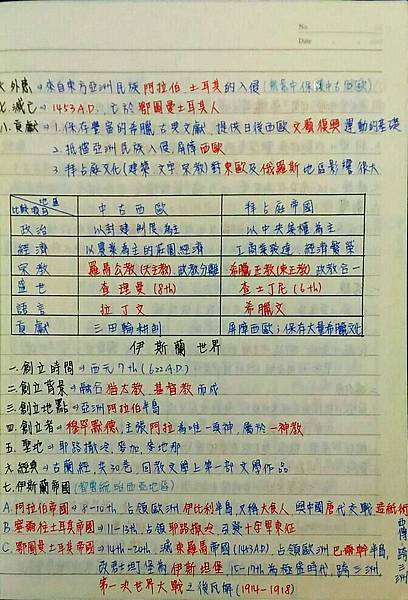 No
Date
六.外患→來自東方亞洲民族阿拉伯、土耳其的入侵(無意中保護中古西歐)
七.滅亡→1453A.D. 亡於鄂圖曼土耳其人
八.貢獻→1.保存豐富的希臘古典文獻,提供日後西歐文藝復興運動的基礎
2.抵擋亞洲民族入侵,屏障西歐
3.拜占庭文化(建築、文字、宗教)對東歐及俄羅斯地區影響很大
地區
比較項目 中古西歐 拜占庭帝國
政治 以封建制度為主 以中央集權為主
經濟 以農業為主的莊園經濟 工商業發達,經濟繁榮
宗教 羅馬公教(天主教)政教分離 希臘正教(東正教)政教合一
盛世 查理曼(8th) 查士丁尼(6th)
語言 拉丁文 希臘文
貢獻 三田輪耕制 屏障西歐;保存大量希臘文化
伊斯蘭世界
一.創立時間→西元7th(622A.D.)
二.創立背景→融合猶太教、基督教而成
三.創立地點→亞洲阿拉伯半島
四.創立者→穆罕默德,主張阿拉為唯一真神,屬於一神教
五.聖地→耶路撒冷、麥加、麥地那
六.經典→古蘭經,共30卷,回教文學上第一部文學作品
七.伊斯蘭帝國
A.阿拉伯帝國→8-10th,占領歐洲伊比利半島,又稱大食人,與中國唐代交戰,造紙術西傳,跨三洲
B.塞爾柱土耳其帝國→11-13th,占領耶路撒冷,引發十字軍東征
C.鄂圖曼土耳其帝國→14th-20th,滅東羅馬帝國(1453AD),占領歐洲巴爾幹半島,
改君士坦丁堡為伊斯坦堡,15-17th為極盛時代,跨三洲
第一次世界大戰之後瓦解(1914-1918)